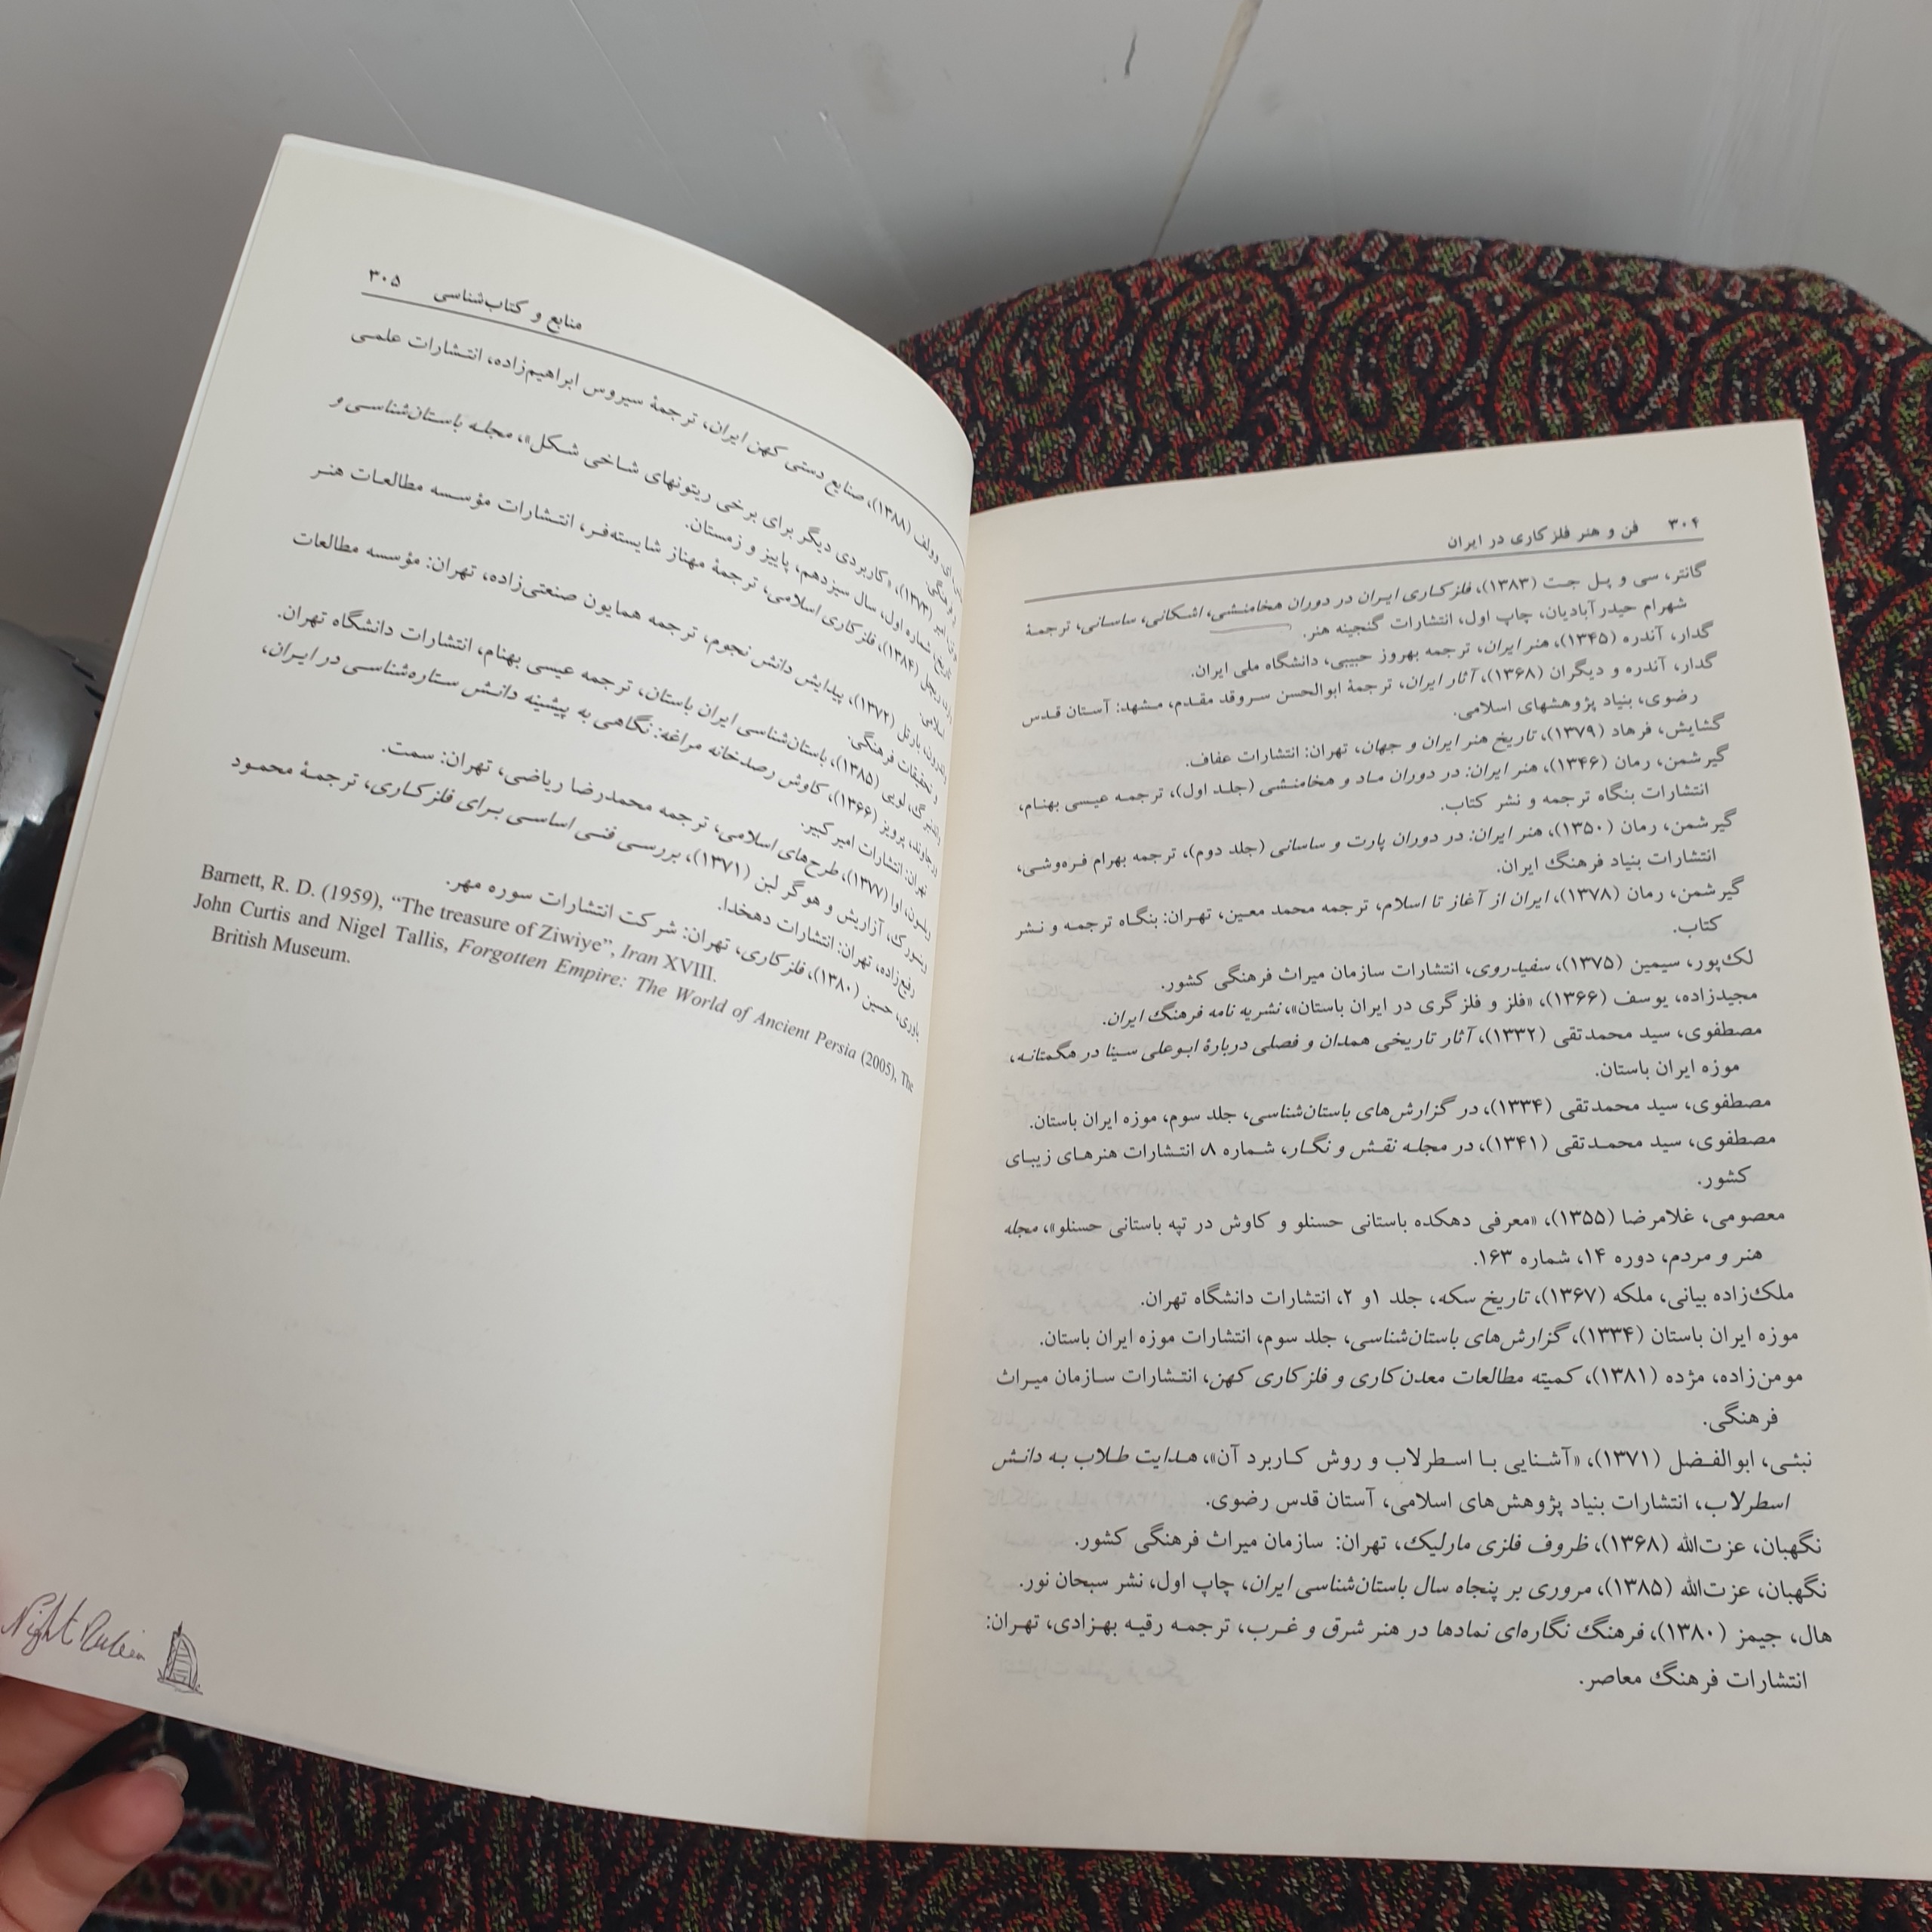 ۳۰۴ فن و هنر فلزکاری در ایران
گانتر، سی و پل جت (۱۳۸۳)، فلزکاری ایران در دوران هخامنشی، اشکانی، ساسانی، ترجمهٔ
شهرام حیدرآبادیان، چاپ اول، انتشارات گنجینه هنر.
گدار، آندره (۱۳۴۵)، هنر ایران، ترجمه بهروز حبیبی، دانشگاه ملی ایران.
گدار، آندره و دیگران (۱۳۶۸)، آثار ایران، ترجمهٔ ابوالحسن سروقد مقدم، مشهد: آستان قدس
رضوی، بنیاد پژوهشهای اسلامی.
گشایش، فرهاد (۱۳۷۹)، تاریخ هنر ایران و جهان، تهران: انتشارات عفاف.
گیرشمن، رمان (۱۳۴۶)، هنر ایران: در دوران ماد و هخامنشی (جلد اول)، ترجمه عیسی بهنام،
انتشارات بنگاه ترجمه و نشر کتاب.
گیرشمن، رمان (۱۳۵۰)، هنر ایران: در دوران پارت و ساسانی (جلد دوم)، ترجمه بهرام فره‌وشی،
انتشارات بنیاد فرهنگ ایران.
گیرشمن، رمان (۱۳۷۸)، ایران از آغاز تا اسلام، ترجمه محمد معین، تهران: بنگاه ترجمه و نشر
کتاب.
لک‌پور، سیمین (۱۳۷۵)، سفیدروی، انتشارات سازمان میراث فرهنگی کشور.
مجیدزاده، یوسف (۱۳۶۶)، «فلز و فلزگری در ایران باستان»، نشریه نامه فرهنگ ایران.
مصطفوی، سید محمدتقی (۱۳۳۲)، آثار تاریخی همدان و فصلی دربارهٔ ابوعلی سینا در هگمتانه،
موزه ایران باستان.
مصطفوی، سید محمدتقی (۱۳۳۴)، در گزارش‌های باستان‌شناسی، جلد سوم، موزه ایران باستان.
مصطفوی، سید محمدتقی (۱۳۴۱)، در مجله نقش و نگار، شماره ۸، انتشارات هنرهای زیبای
کشور.
معصومی، غلامرضا (۱۳۵۵)، «معرفی دهکده باستانی حسنلو و کاوش در تپه باستانی حسنلو»، مجله
هنر و مردم، دوره ۱۴، شماره ۱۶۳.
ملک‌زاده بیانی، ملکه (۱۳۶۷)، تاریخ سکه، جلد ۱و ۲، انتشارات دانشگاه تهران.
موزه ایران باستان (۱۳۳۴)، گزارش‌های باستان‌شناسی، جلد سوم، انتشارات موزه ایران باستان.
مومن‌زاده، مژده (۱۳۸۱)، کمیته مطالعات معدن‌کاری و فلزکاری کهن، انتشارات سازمان میراث
فرهنگی.
نبئی، ابوالفضل (۱۳۷۱)، «آشنایی با اسطرلاب و روش کاربرد آن»، هدایت طلاب به دانش
اسطرلاب، انتشارات بنیاد پژوهش‌های اسلامی، آستان قدس رضوی.
نگهبان، عزت‌الله (۱۳۶۸)، ظروف فلزی مارلیک، تهران: سازمان میراث فرهنگی کشور.
نگهبان، عزت‌الله (۱۳۸۵)، مروری بر پنجاه سال باستان‌شناسی ایران، چاپ اول، نشر سبحان نور.
هال، جیمز (۱۳۸۰)، فرهنگ نگاره‌ای نمادها در هنر شرق و غرب، ترجمه رقیه بهزادی، تهران:
انتشارات فرهنگ معاصر.
منابع و کتاب‌شناسی ۳۰۵
وولف (۱۳۸۸)، صنایع دستی کهن ایران، ترجمهٔ سیروس ابراهیم‌زاده، انتشارات علمی
فرهنگی.
(۱۳۷۳)، «کاربردی دیگر برای برخی ریتونهای شاخی شکل»، مجله باستان‌شناسی و
تاریخ، شماره اول، سال سیزدهم، پاییز و زمستان.
ریچل (۱۳۸۴)، فلزکاری اسلامی، ترجمهٔ مهناز شایسته‌فر، انتشارات مؤسسه مطالعات هنر
اسلامی.
بارتل (۱۳۷۲)، پیدایش دانش نجوم، ترجمه همایون صنعتی‌زاده، تهران: مؤسسه مطالعات
و تحقیقات فرهنگی.
لویی (۱۳۸۵)، باستان‌شناسی ایران باستان، ترجمه عیسی بهنام، انتشارات دانشگاه تهران.
ورجاوند، پرویز (۱۳۶۶)، کاوش رصدخانه مراغه: نگاهی به پیشینه دانش ستاره‌شناسی در ایران،
تهران: انتشارات امیرکبیر.
ویلسون، اوا (۱۳۷۷)، طرح‌های اسلامی، ترجمه محمدرضا ریاضی، تهران: سمت.
آزاریش و هوگر لین (۱۳۷۱)، بررسی فنی اساسی برای فلزکاری، ترجمهٔ محمود
رفیع‌زاده، تهران: انتشارات دهخدا.
یاوری، حسین (۱۳۸۰)، فلزکاری، تهران: شرکت انتشارات سوره مهر.
Barnett, R. D. (1959), “The treasure of Ziwiye”, Iran XVIII.
John Curtis and Nigel Tallis, Forgotten Empire: The World of Ancient Persia (2005), The
British Museum.
Night